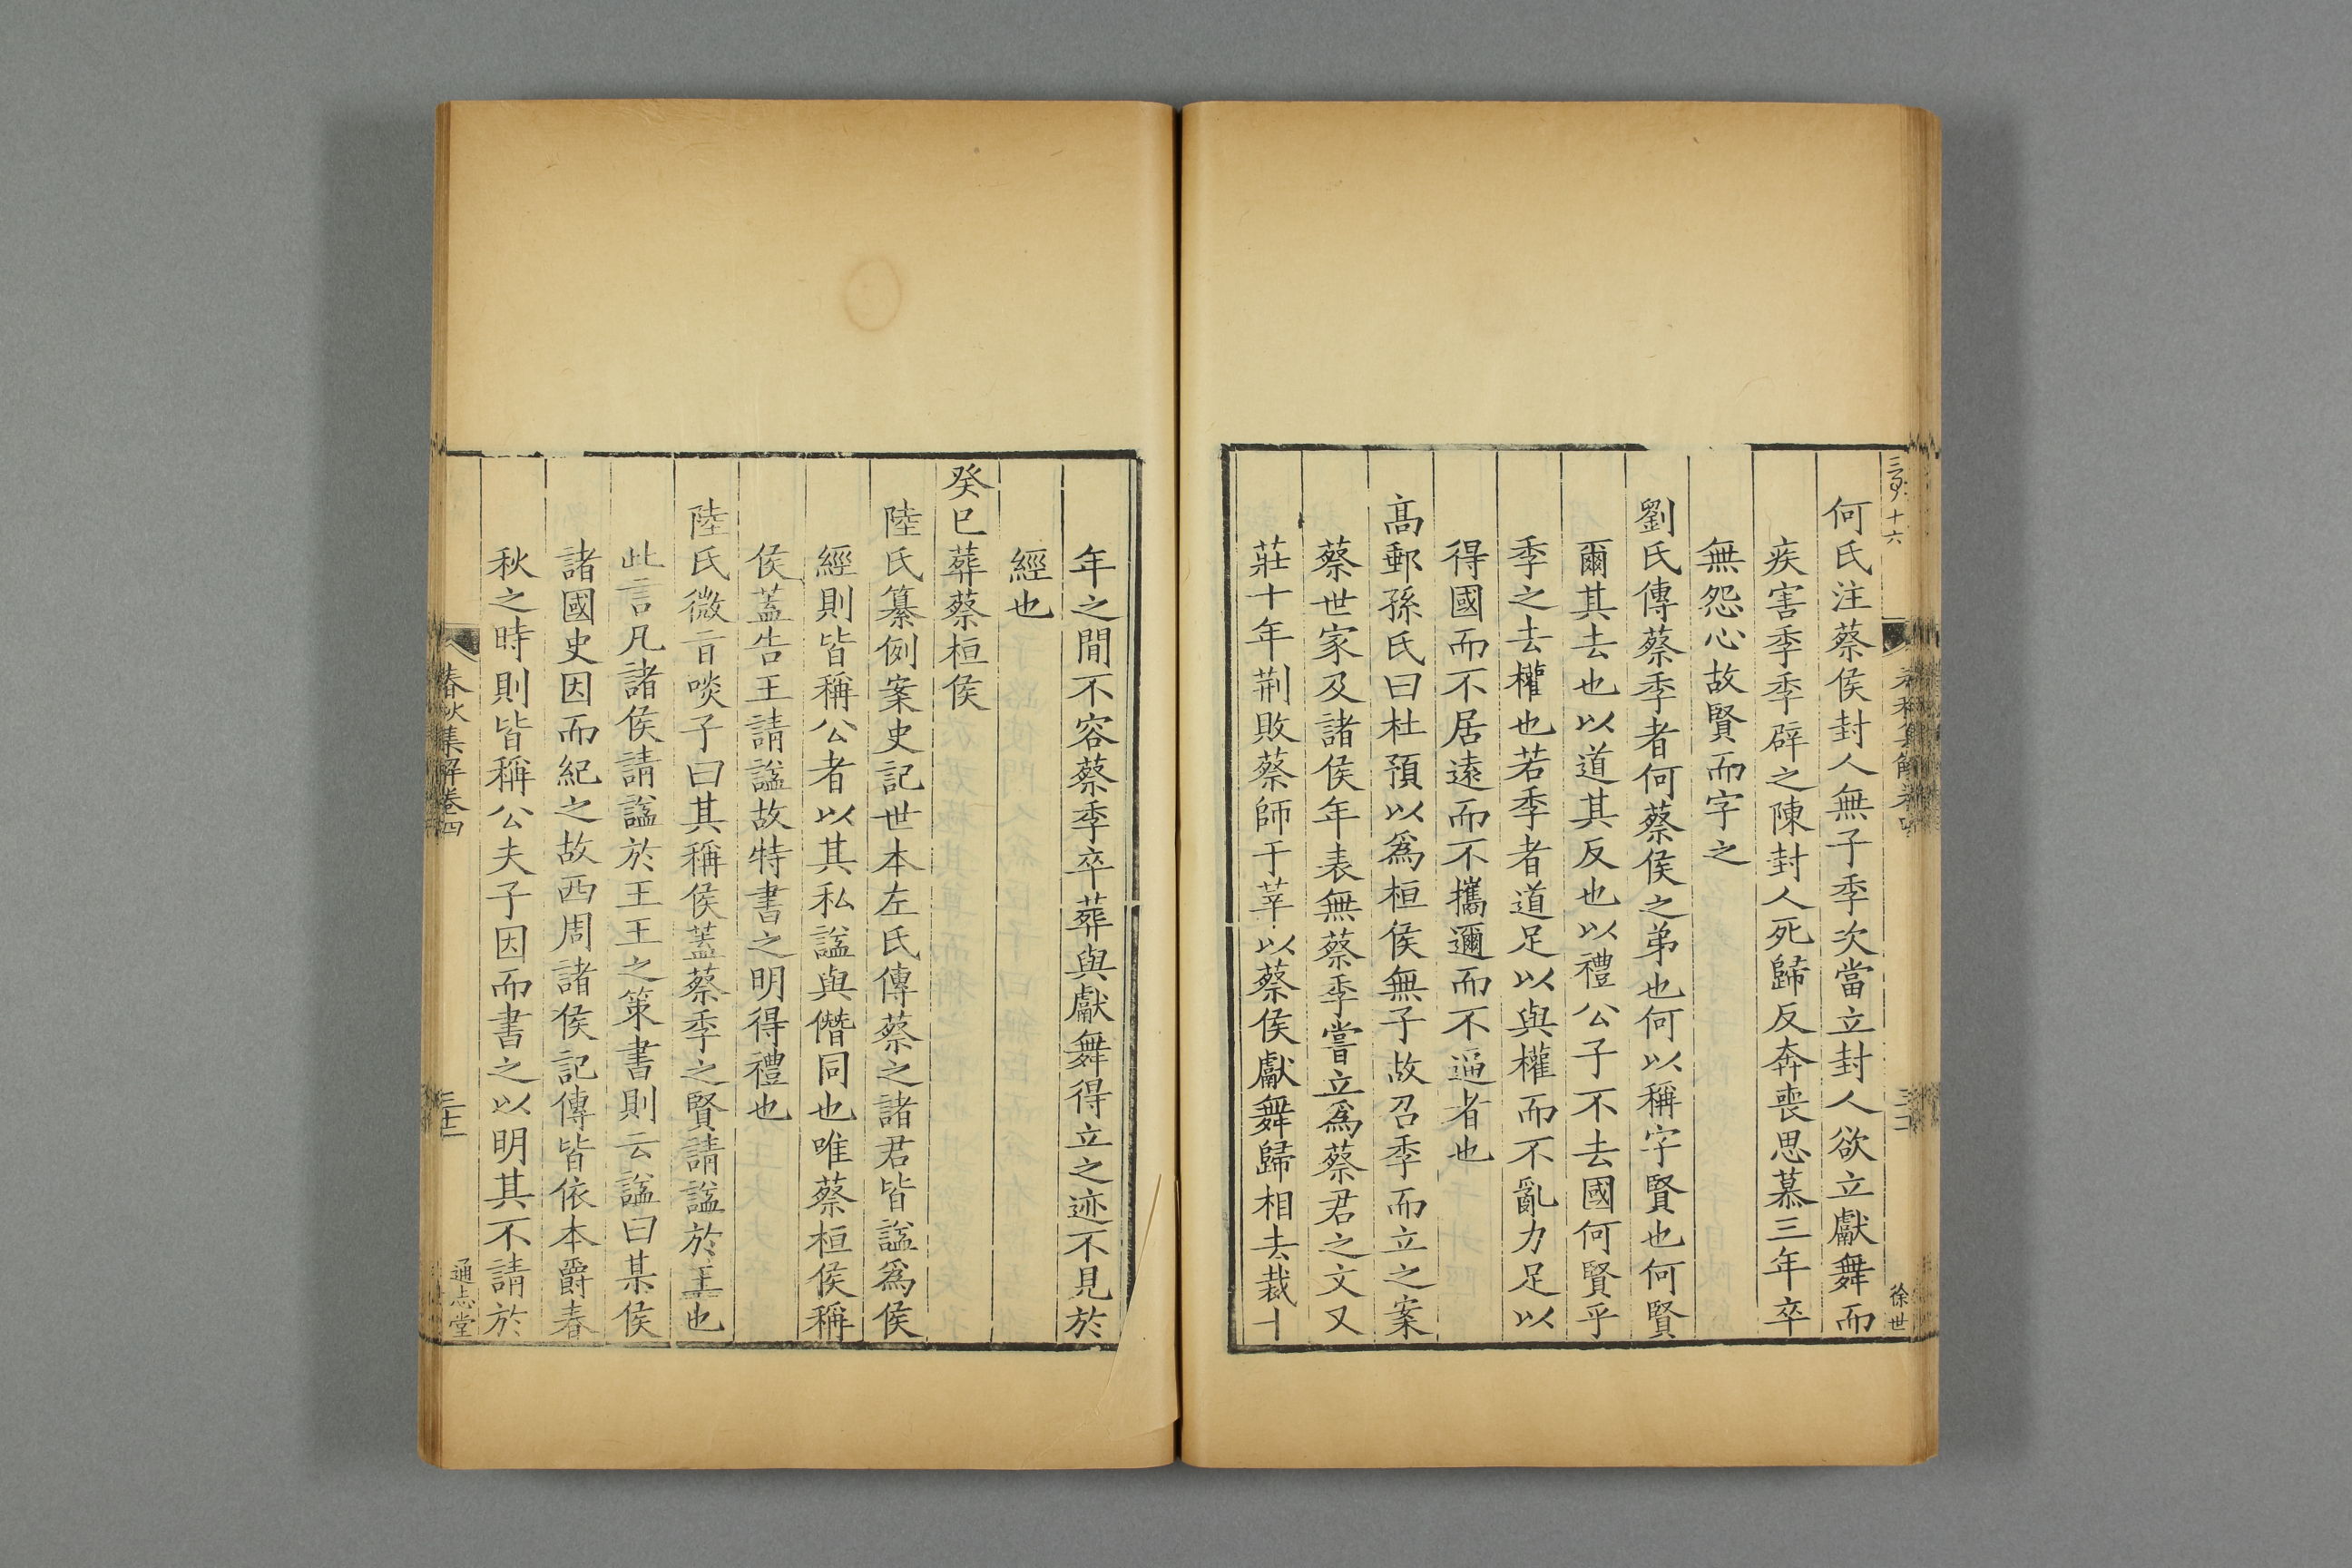 何氏注蔡侯封人無子季次當立封人欲立獻舞而
疾害季季辟之陳封人死歸反奔喪思慕三年卒
無怨心故賢而字之
劉氏傳蔡季者何蔡侯之弟也何以稱字賢也何賢
爾其去也以道其反也以禮公子不去國何賢乎
季之去權也若季者道足以與權而不亂力足以
得國而不居遠而不攜邇而不逼者也
高郵孫氏曰杜預以爲桓侯無子故召季而立之案
蔡世家及諸侯年表無蔡季嘗立爲蔡君之文又
莊十年荆敗蔡師于莘以蔡侯獻舞歸相去裁十
年之間不容蔡季卒葬與獻舞得立之迹不見於
經也
癸巳葬蔡桓侯
陸氏纂例案史記世本左氏傳蔡之諸君皆諡爲侯
經則皆稱公者以其私諡與僭同也唯蔡桓侯稱
侯蓋告王請諡故特書之明得禮也
陸氏微旨啖子曰其稱侯蓋蔡季之賢請諡於王也
此言凡諸侯請諡於王王之策書則云諡曰某侯
諸國史因而紀之故西周諸侯記傳皆依本爵春
秋之時則皆稱公夫子因而書之以明其不請於
春秋集解卷四
通志堂
徐世